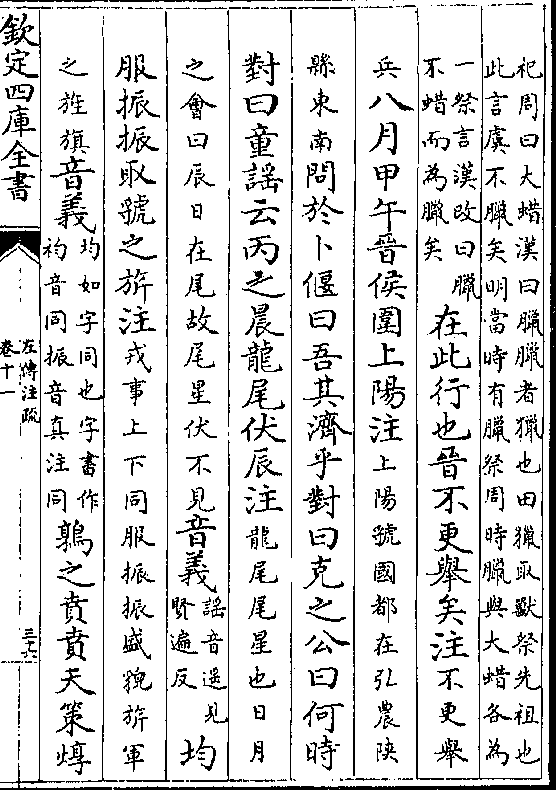 祀周曰大蜡漢曰臘臘者獵也田獵取獸祭先祖也
此言虞不臘矣明當時有臘祭周時臘與大蜡各為
一祭言漢改曰臘
不蜡而為臘矣
在此行也晉不更舉矣注不更舉
兵八月甲午晉侯圍上陽注上陽虢國都在弘農陝
縣東南問於卜偃曰吾其濟乎對曰克之公曰何時
對曰童謡云丙之晨龍尾伏辰注龍尾尾星也日月
之會曰辰日在尾故尾星伏不見音義
謡音遥見
賢遍反
均
服振振取虢之旂注戎事上下同服振振盛貌旂軍
之旌旗音義
均如字同也字書作
袀音同振音真注同
鶉之賁賁天策焞
欽定四庫全書
左傳注疏
卷十一
三十六